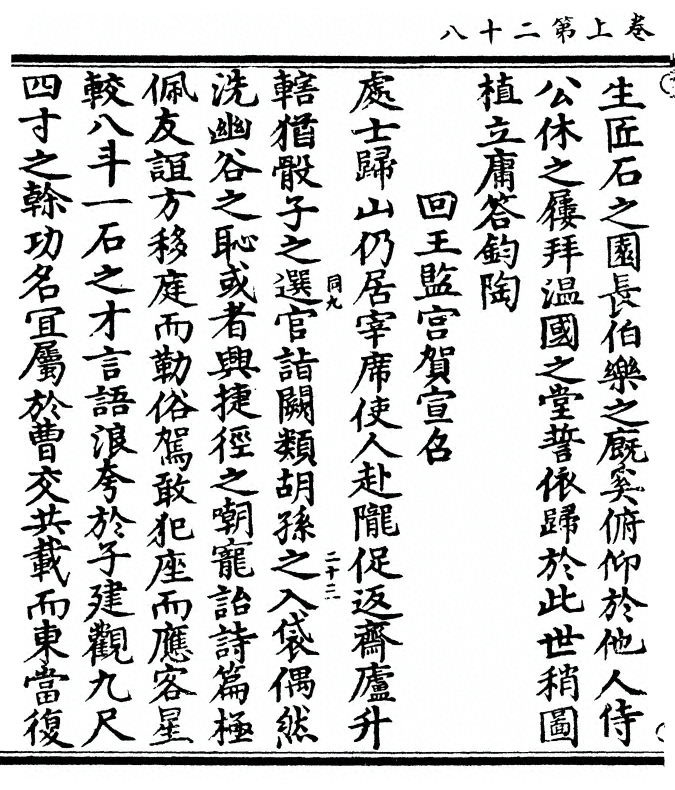 卷上第二十八
生匠石之園長伯樂之廐奚俯仰於他人侍
公休之屨拜温國之堂誓依歸於此世稍圖
植立庸答鈞陶
回王監宮賀宣名
處士歸山仍居宰席使人赴隴促返齋廬升
同九
二十二
轄猶骰子之選官詣闕類胡孫之入袋偶然
洗幽谷之恥或者興捷徑之嘲寵詒詩篇極
佩友誼方移庭而勒俗駕敢犯座而應客星
較八斗一石之才言語浪夸於子建觀九尺
四寸之榦功名冝屬於曹交共載而東當復